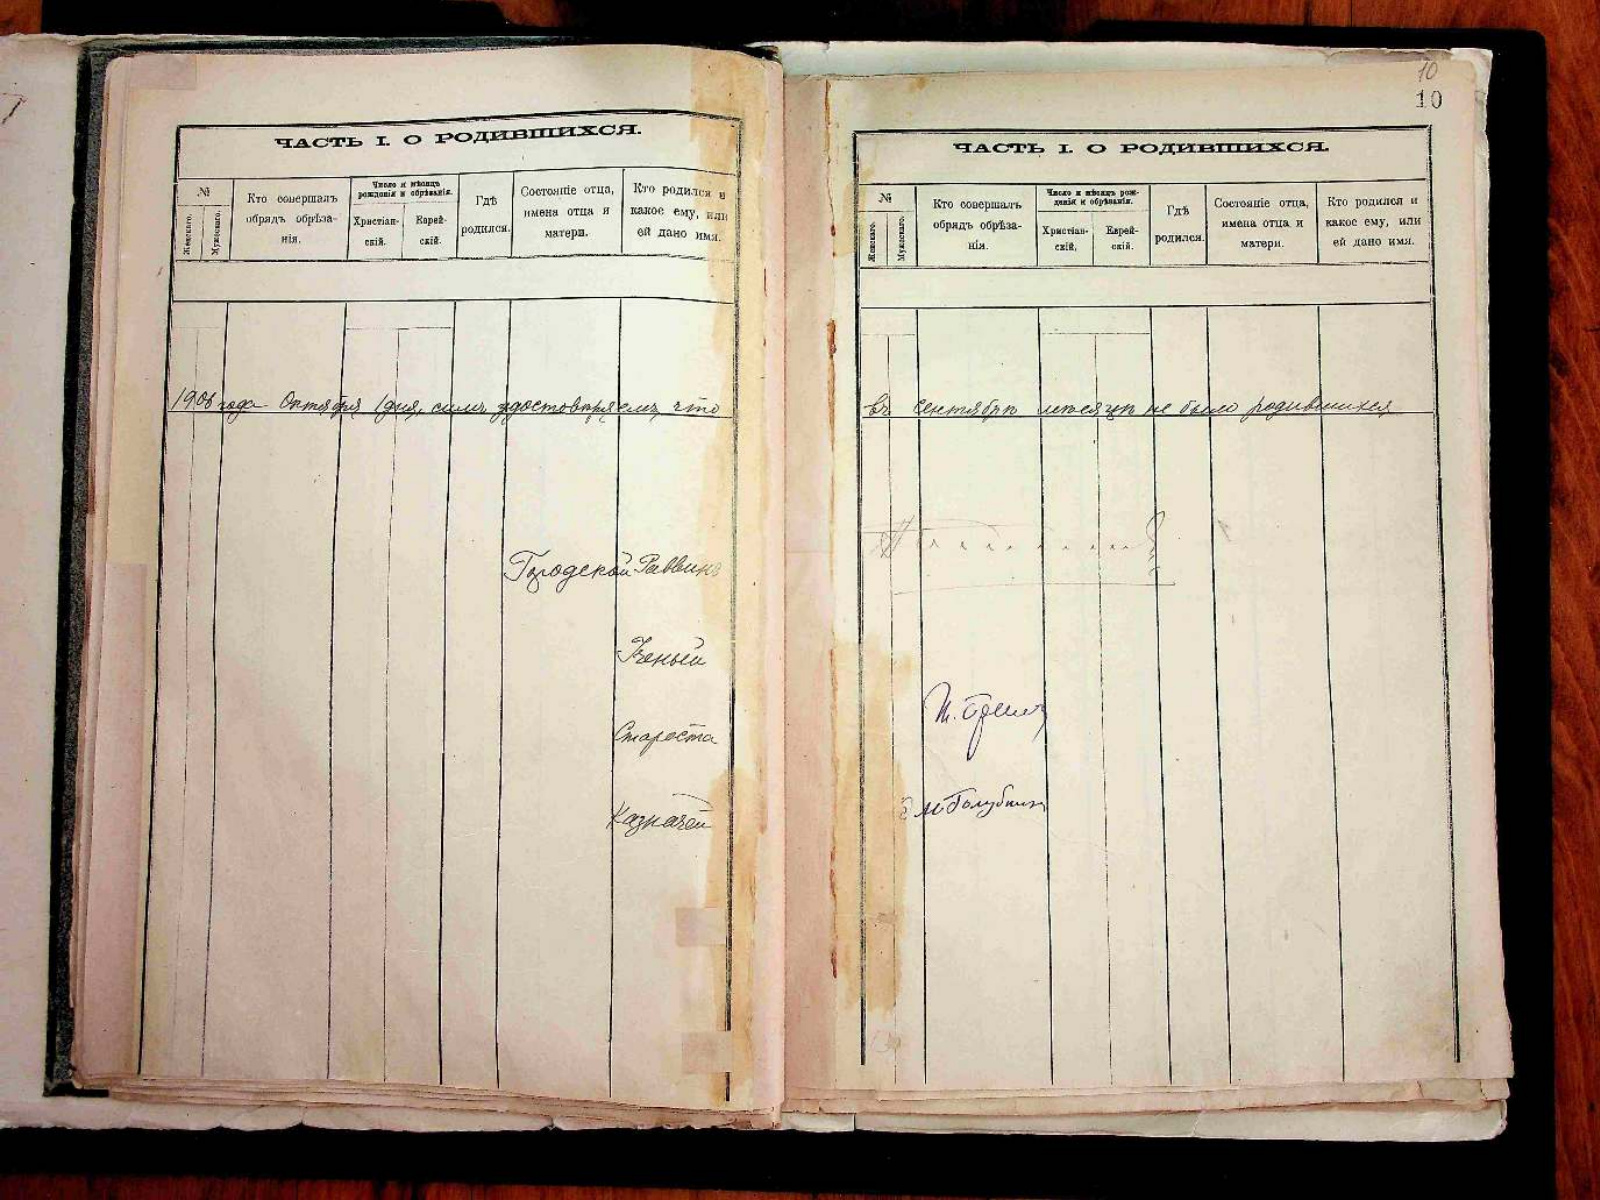 ЧАСТЬ I. О РОДИВШИХСЯ.
№
Женскаго.
Мужескаго.
Кто совершалъ
обрядъ обрѣза-
нія.
Число и мѣсяцъ
рожденія и обрѣзанія.
Христіан-
скій.
Еврей-
скій.
Гдѣ
родился.
Состояніе отца,
имена отца и
матери.
Кто родился и
какое ему, или
ей дано имя.
1906 года Октября 1 дня, симъ удостовѣряемъ, что
Городской Раввинъ
Ученый
Староста
Казначей
10
10
ЧАСТЬ I. О РОДИВШИХСЯ.
№
Женскаго.
Мужескаго.
Кто совершалъ
обрядъ обрѣза-
нія.
Число и мѣсяцъ рож-
денія и обрѣзанія.
Христіан-
скій.
Еврей-
скій.
Гдѣ
родился.
Состояніе отца,
имена отца и
матери.
Кто родился и
какое ему, или
ей дано имя.
въ Сентябрѣ мѣсяцѣ не было родившихся